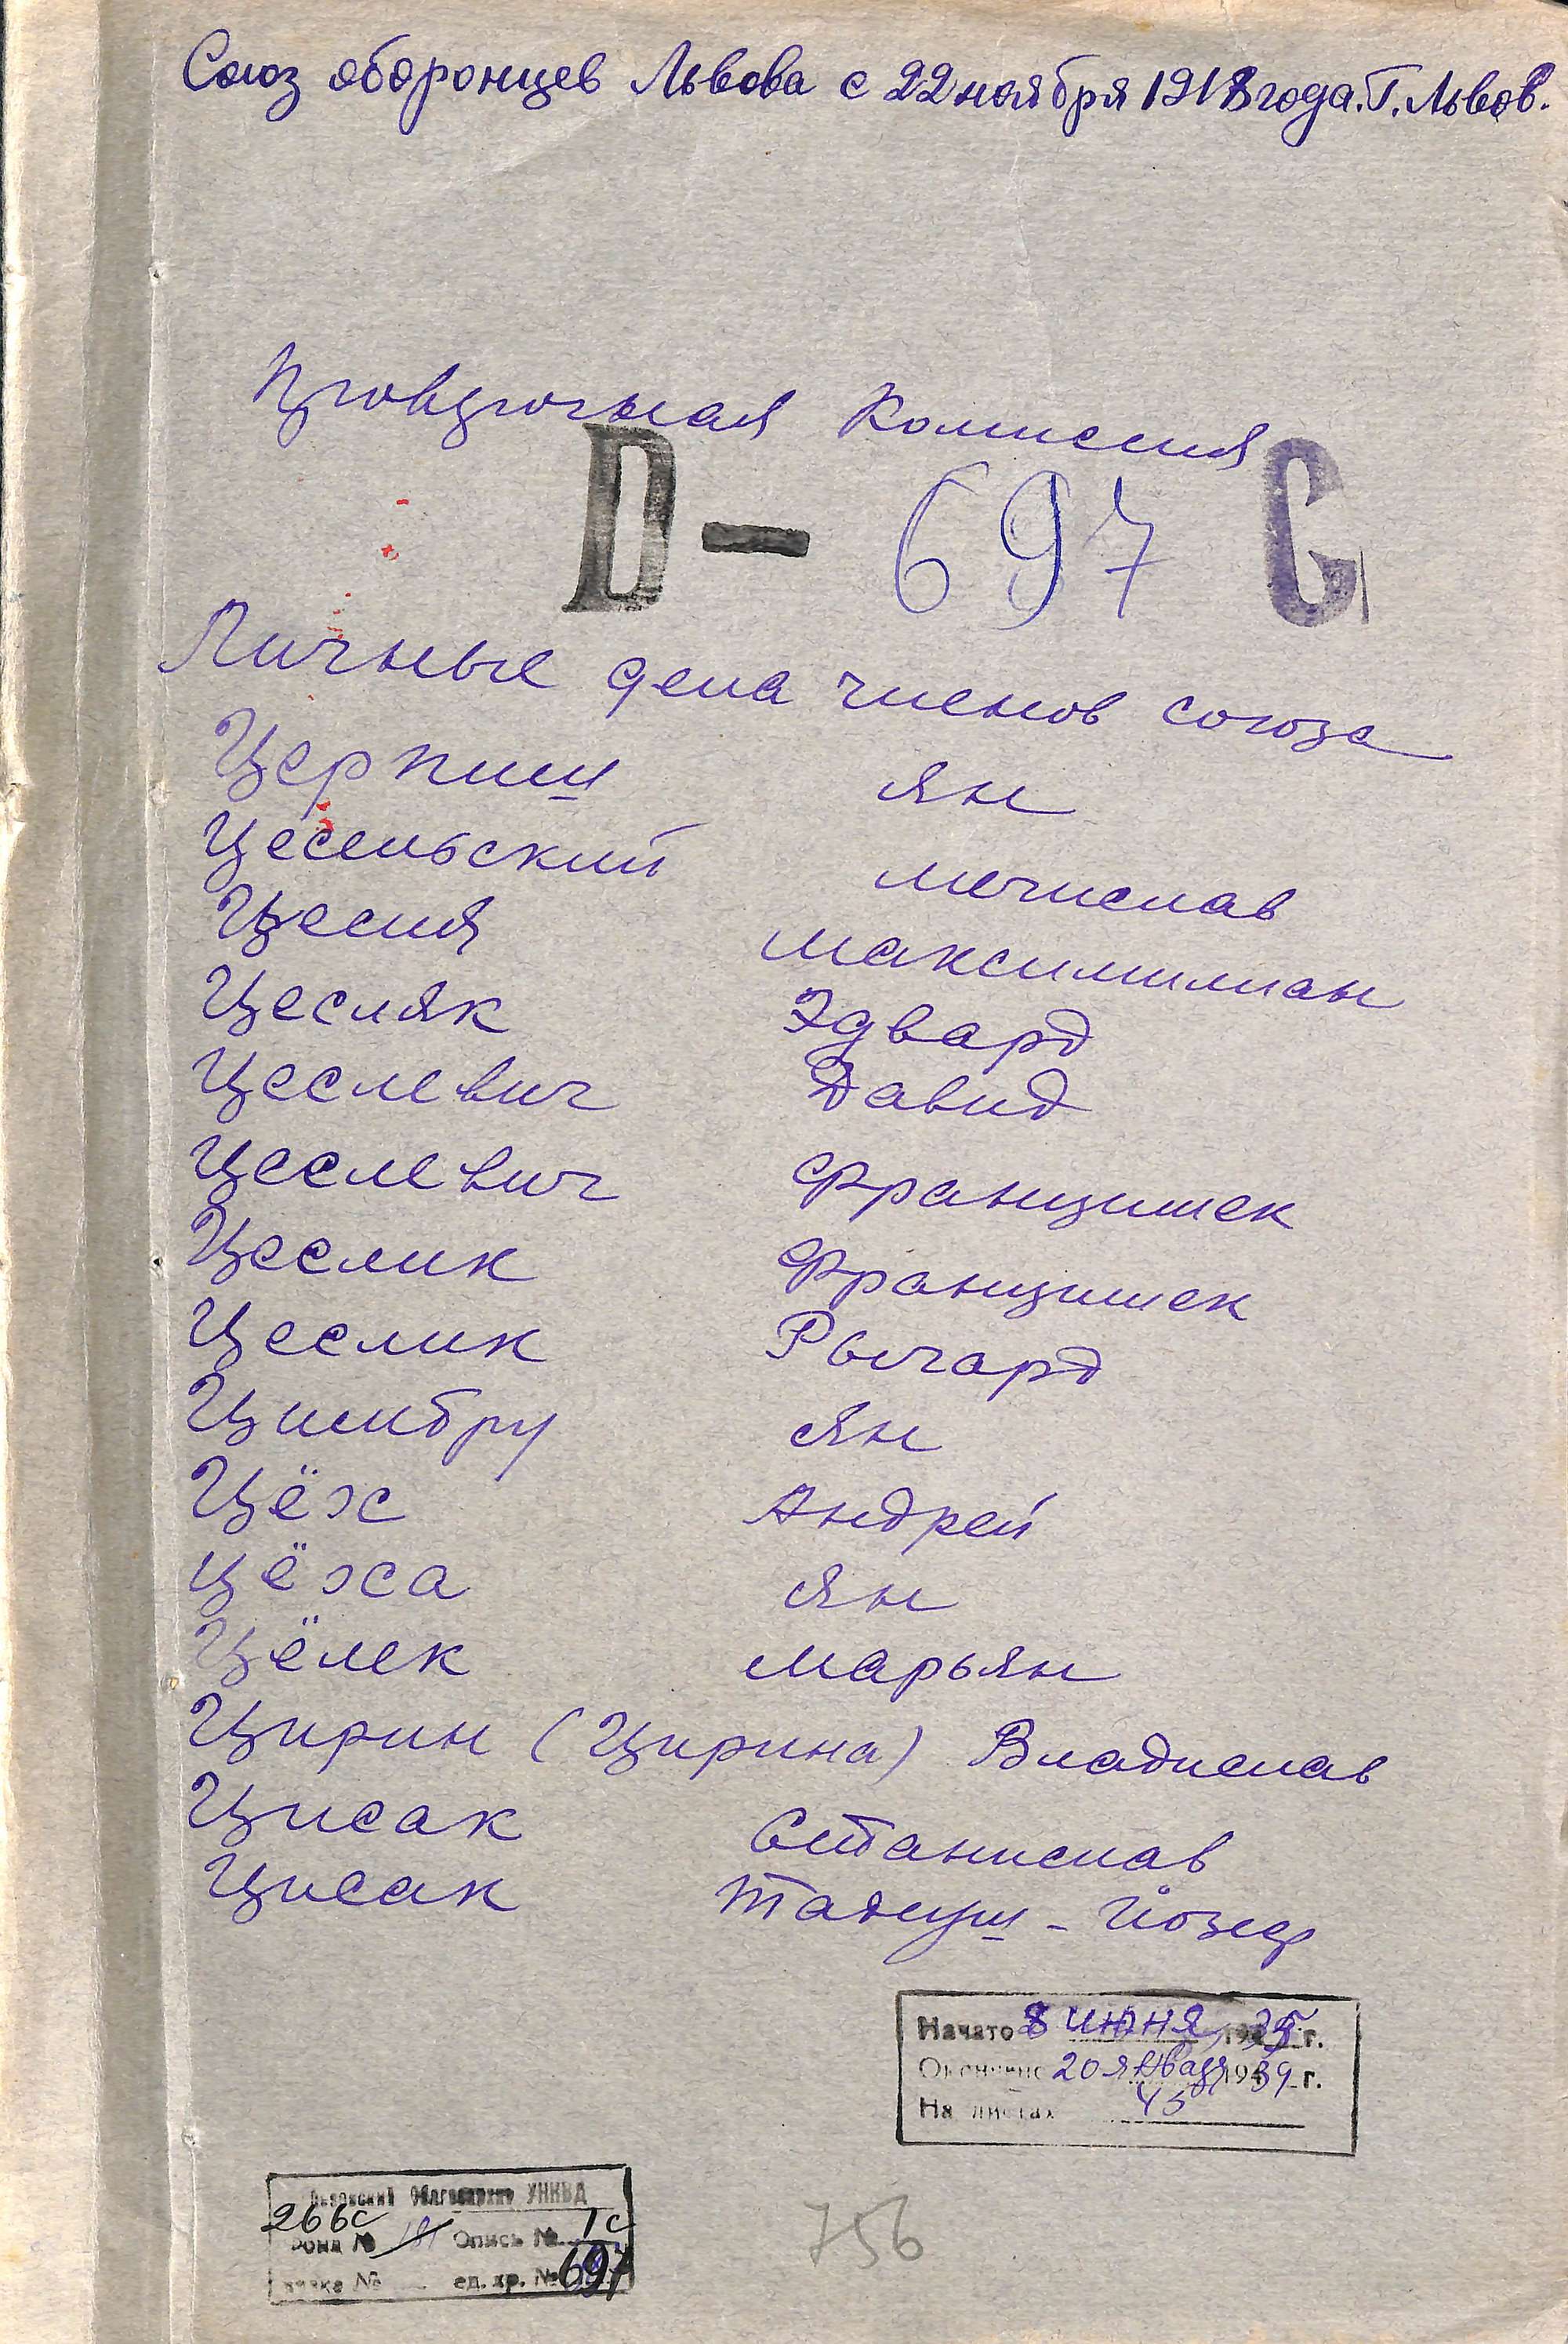 Союз оборонцев Львова с 22 ноября 1918 года. Г. Львов.
Комиссия
D – 697 С
Личные дела членов союза
Церпиш Ян
Цесельский Мечислав
Цесля Максимилиан
Цесляк Эдвард
Цеслевич Давид
Цеслевич Францишек
Цеслик Францишек
Цеслик Рычард
Цимбру Ян
Цёх Андрей
Цёхса Ян
Цёлек Марьян
Цирин (Цирина) Владислав
Цисак Станислав
Цисак Тадеуш - Йозеф
Начато 8 июня 1935 г.
Окончено 20 января 1939 г.
На листах 45
Львовский Облгосархив УНКВД
266с
Фонд № 181 Опись № 1с
вязка № ед. хр. № 697
756